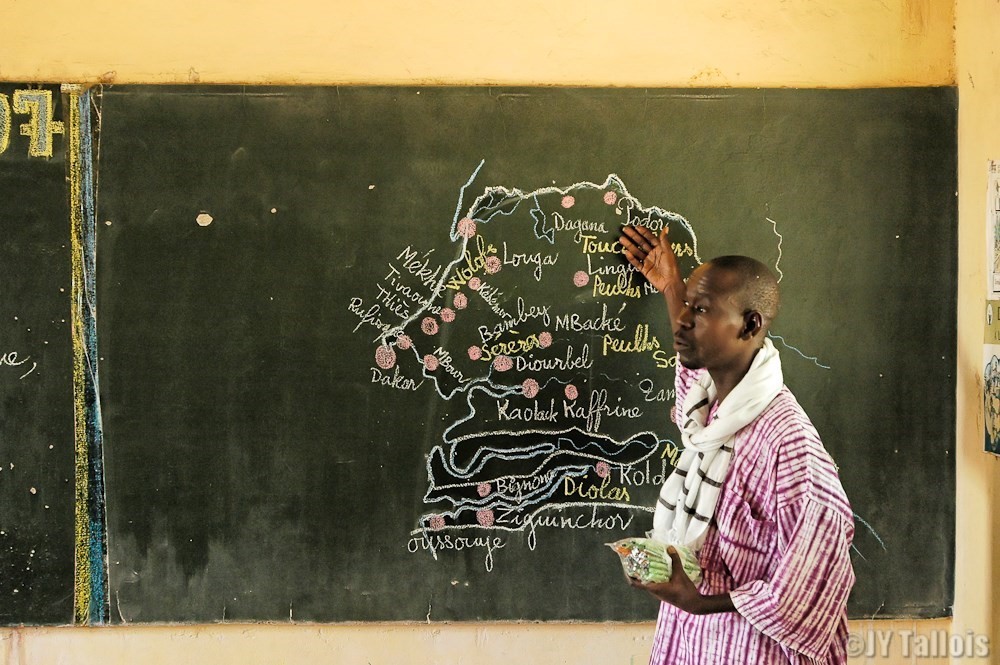 07
Podor
Dagana
Louga
Wolofs
Mékhé
Tivaouane
Thiès
Rufisque
Kébémer
Peulhs
Bambey
MBacké
Sérères
Peulhs
Diourbel
MBour
Dakar
Kaolack
Kaffrine
Diolas
Bignona
Ziguinchor
oussouye
©JY Tallois